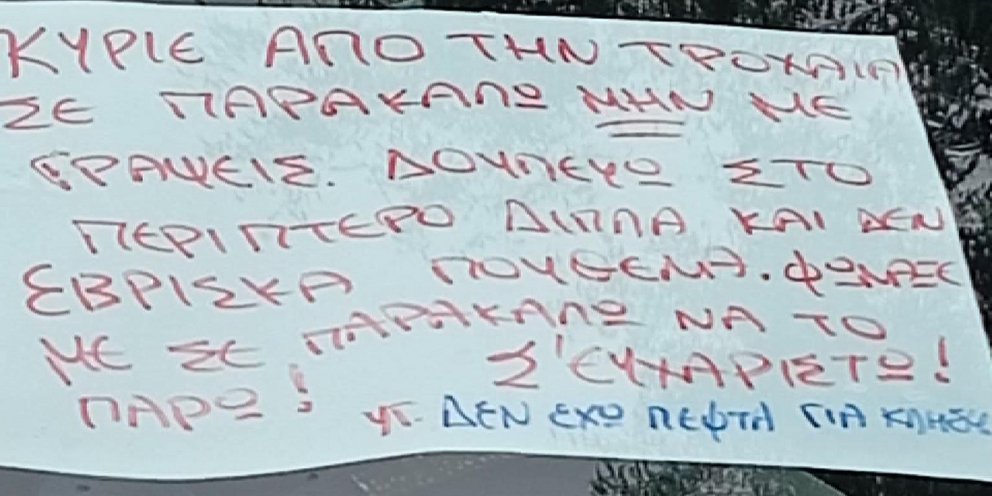 ΚΥΡΙΕ ΑΠΟ ΤΗΝ ΤΡΟΧΑΙΑ
ΣΕ ΠΑΡΑΚΑΛΩ ΜΗΝ ΜΕ
ΓΡΑΨΕΙΣ. ΔΟΥΛΕΥΩ ΣΤΟ
ΠΕΡΙΠΤΕΡΟ ΔΙΠΛΑ ΚΑΙ ΔΕΝ
ΕΒΡΙΣΚΑ ΠΟΥΘΕΝΑ. ΦΩΝΑΞΕ
ΜΕ ΣΕ ΠΑΡΑΚΑΛΩ ΝΑ ΤΟ
ΠΑΡΩ! Σ'ΕΥΧΑΡΙΣΤΩ!
ΥΓ. ΔΕΝ ΕΧΩ ΛΕΦΤΑ ΓΙΑ ΚΛΗΣΕΙΣ